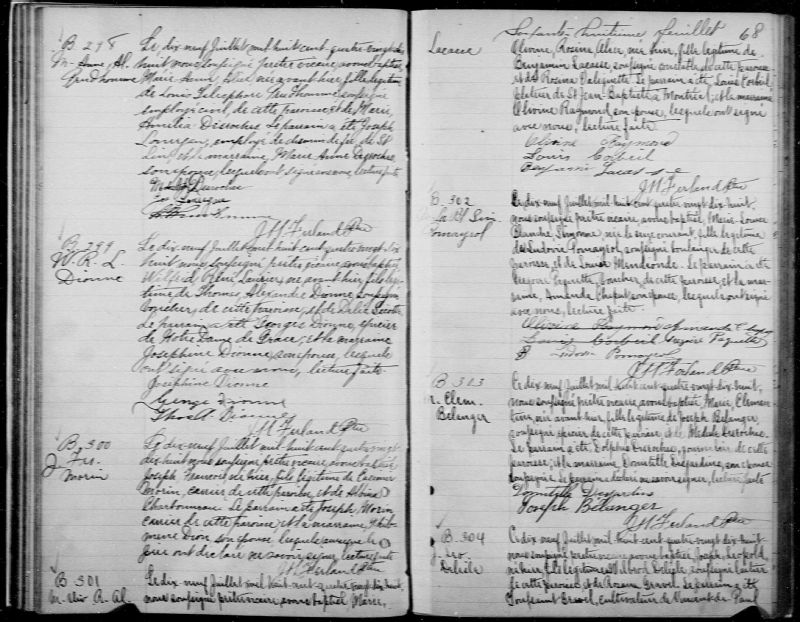 B 298
M. Anne, Al.
Prudhomme
Le dix neuf Juillet mil huit cent quatre vingt dix
huit nous soussigné prêtre vicaire avons baptisé
Marie Anne, née avant hier, fille légitime
de Louis Télesphore Prudhomme soussigné
employé civil, de cette paroisse, et de Marie
Amélia Desroches. Le parrain a été Joseph
Lonergan, employé de chemin de fer, de St
et la marraine, Marie Anne Desroches,
son épouse, lesquels ont signé avec nous, lecture faite
J H Ferland Ptre
B 299
W. R. L.
Dionne
Le dix neuf Juillet mil huit cent quatre vingt dix
huit nous soussigné prêtre vicaire avons baptisé
Wilfrid, Rémi, Laurier, né avant hier, fils légi
time de Thomas Alexandre Dionne soussigné
cocher, de cette paroisse, et de Délia
Le parrain a été Georges Dionne, épicier
de Notre Dame de Grace, et la marraine
Josephine Dionne, son épouse, lesquels
ont signé avec nous, lecture faite
Joséphine Dionne
George Dionne
Thos A. Dionne
J H Ferland Ptre
B 300
J. Frs.
Morin
Le dix neuf Juillet mil huit cent quatre vingt
dix huit nous soussigné prêtre vicaire, avons baptisé
Joseph, François, né hier, fils légitime de
Morin, carrier de cette paroisse, et de Albina
Charbonneau. Le parrain a été Joseph Morin
carrier de cette paroisse, et la marraine,
Dion, son épouse, lesquels ainsi que le
père ont déclaré ne savoir signer, lecture faite
J H Ferland Ptre
B 301
M. Oliv. R. Al.
Le dix neuf Juillet mil huit cent quatre vingt dix huit,
nous soussigné prêtre vicaire, avons baptisé Marie,
Soixante huitième feuillet 68
Lacasse
Olivine, Rosina, Alice, née hier, fille légitime de
Benjamin Lacasse, soussigné de cette paroisse,
et de Rosina Paquette. Le parrain a été Louis Corbeil,
de St Jean-Baptiste à Montréal, et la marraine
Olivine Raymond son épouse, lesquels ont signé
avec nous, lecture faite.
Olivine Raymond
Louis Corbeil
Benjamin Lacasse
J H Ferland Ptre
B 302
Pomayrol
Le dix neuf Juillet mil huit cent quatre vingt dix huit,
nous soussigné prêtre vicaire, avons baptisé Marie-Louise
Simone, née le seize courant, fille légitime
de Ludovic Pomayrol, soussigné boulanger de cette
paroisse, et de Louise Le parrain a été
Grégoire Paquette, boucher, de cette paroisse, et la mar
raine, Amanda son épouse, lesquels ont signé
avec nous, lecture faite.
Olivina Raymond Amanda
Louis Corbeil Grégoire Paquette
Ludovic Pomayrol
J H Ferland Ptre
B 303
M. Clem.
Bélanger
Le dix neuf Juillet mil huit cent quatre vingt dix huit,
nous soussigné prêtre vicaire, avons baptisé Marie, Clémen
tine, née avant hier, fille légitime de Joseph Bélanger,
soussigné épicier de cette paroisse et de Médule Desroches.
Le parrain a été, Dolphis Desroches, journalier de cette
paroisse; et la marraine, Domitille Desjardins, son épouse
soussignée. Le parrain a déclaré ne savoir signer, lecture faite
Domitille Desjardins
Joseph Bélanger
J H Ferland Ptre
B 304
J. Leo.
Delisle
Le dix neuf Juillet mil huit cent quatre vingt dix huit,
nous soussigné prêtre vicaire avons baptisé Joseph, Léopold,
né hier, fils légitime de Delisle, soussigné
de cette paroisse, et de Rosanna Gravel. Le parrain a été
Toussaint Gravel, cultivateur de St Vincent de Paul